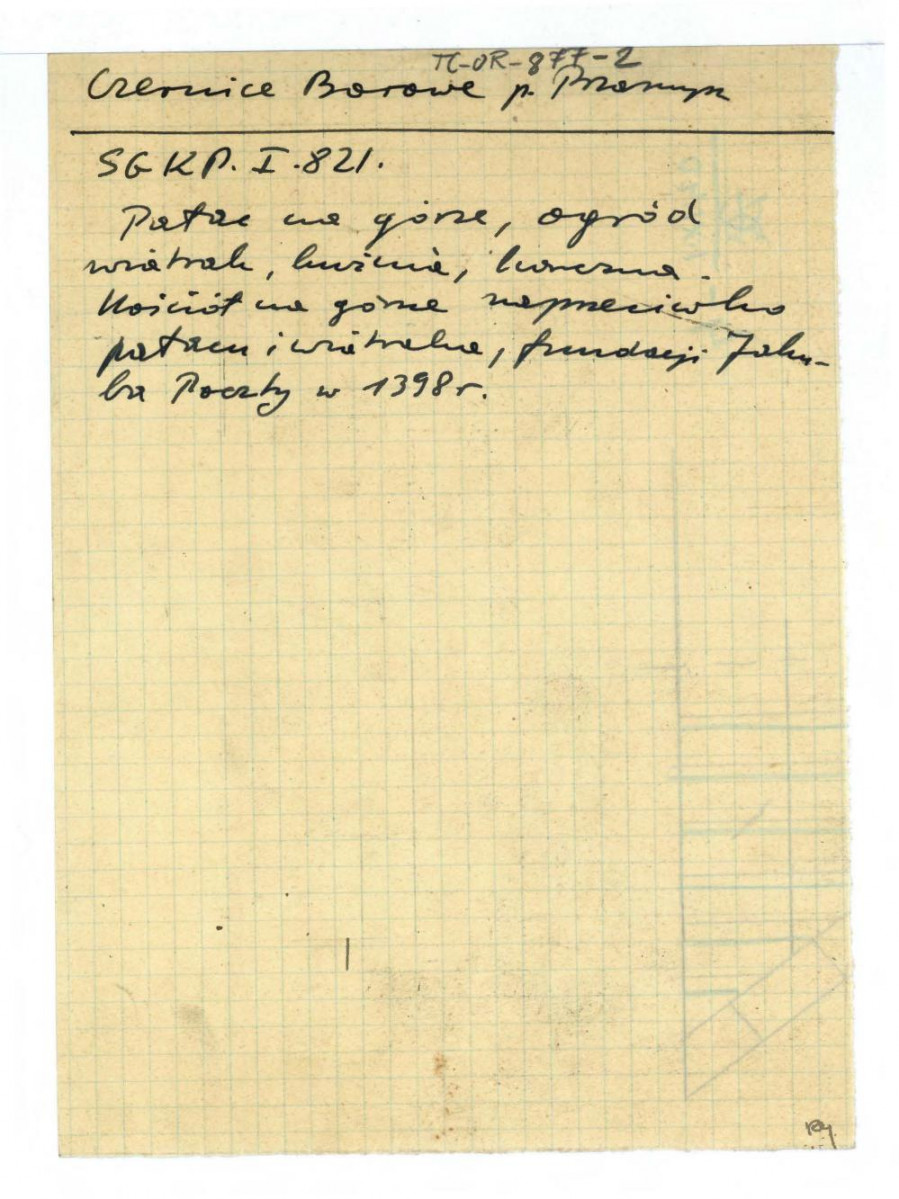 TC-OR-877-2
Czernice Borowe p. Przasnysz
SGKP. I. 821.
Pałac na górze, ogród
wiatrak, kuźnia, karczma.
Kościół na górze naprzeciwko
pałacu i wiatraka, fundacji Jaku-
ba Poczty w 1398 r.